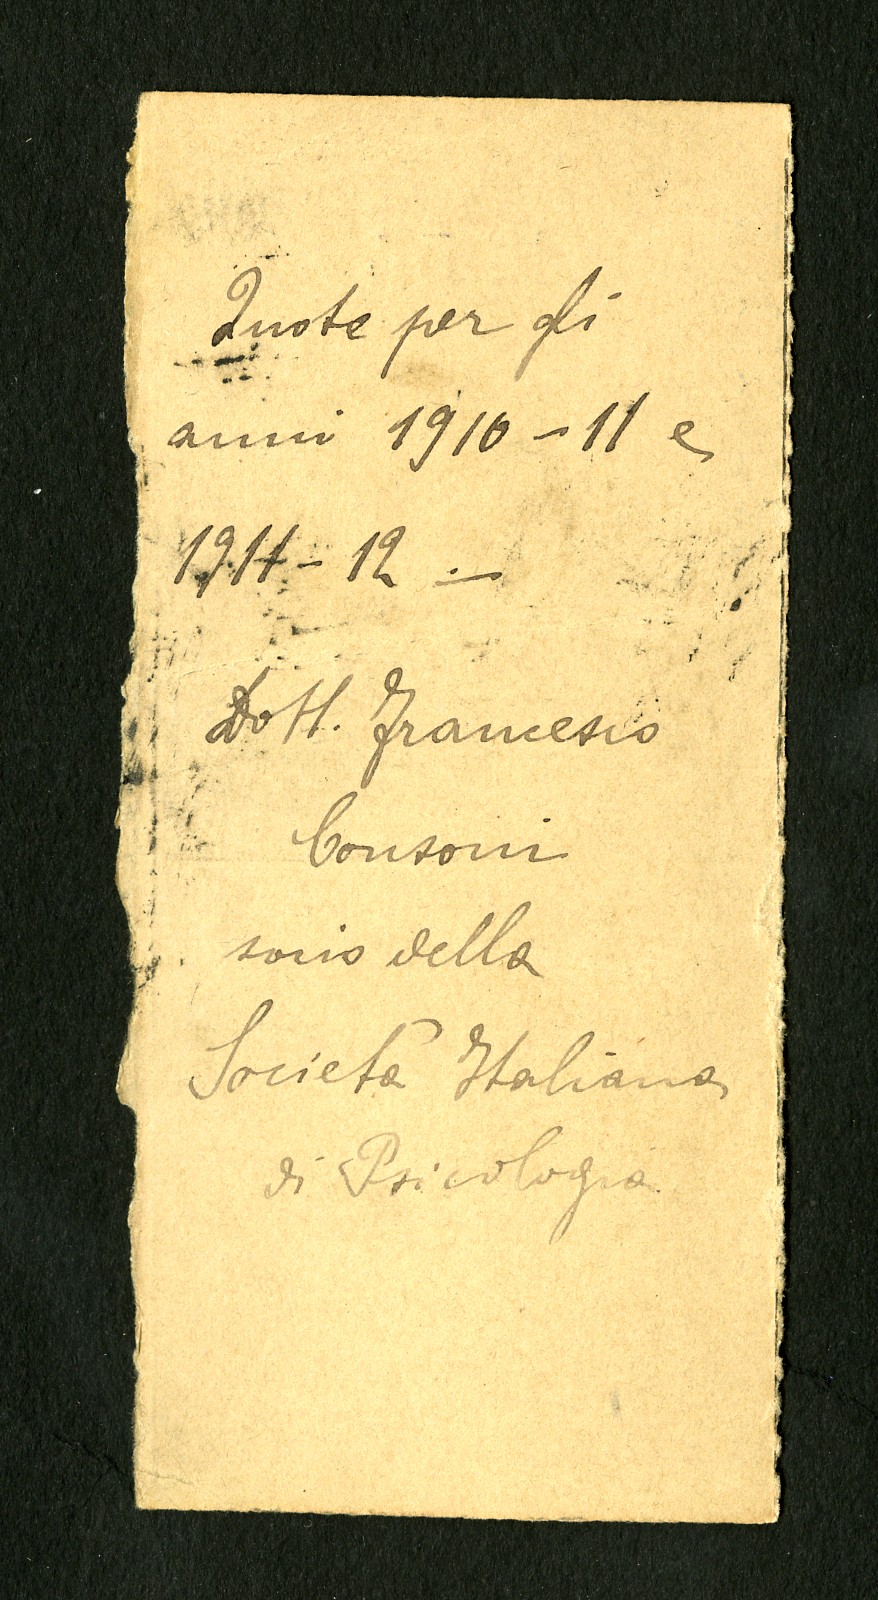 Quote per gli
anni 1910-11 e
1911-12.—
Dott. Francesco
Consoni
socio della
Società Italiana
di Psicologia